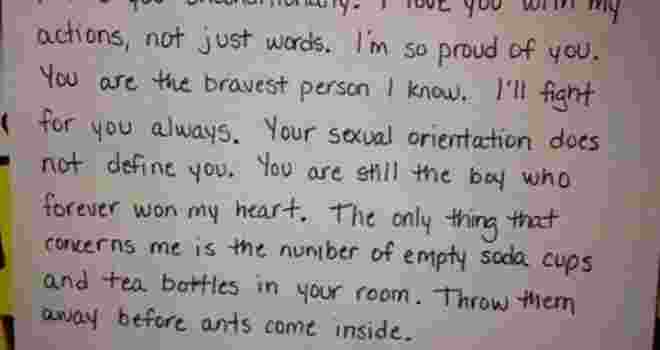 you unconditionally. I love you with my
actions, not just words. I'm so proud of you.
You are the bravest person I know. I'll fight
for you always. Your sexual orientation does
not define you. You are still the boy who
forever won my heart. The only thing that
concerns me is the number of empty soda cups
and tea bottles in your room. Throw them
away before ants come inside.